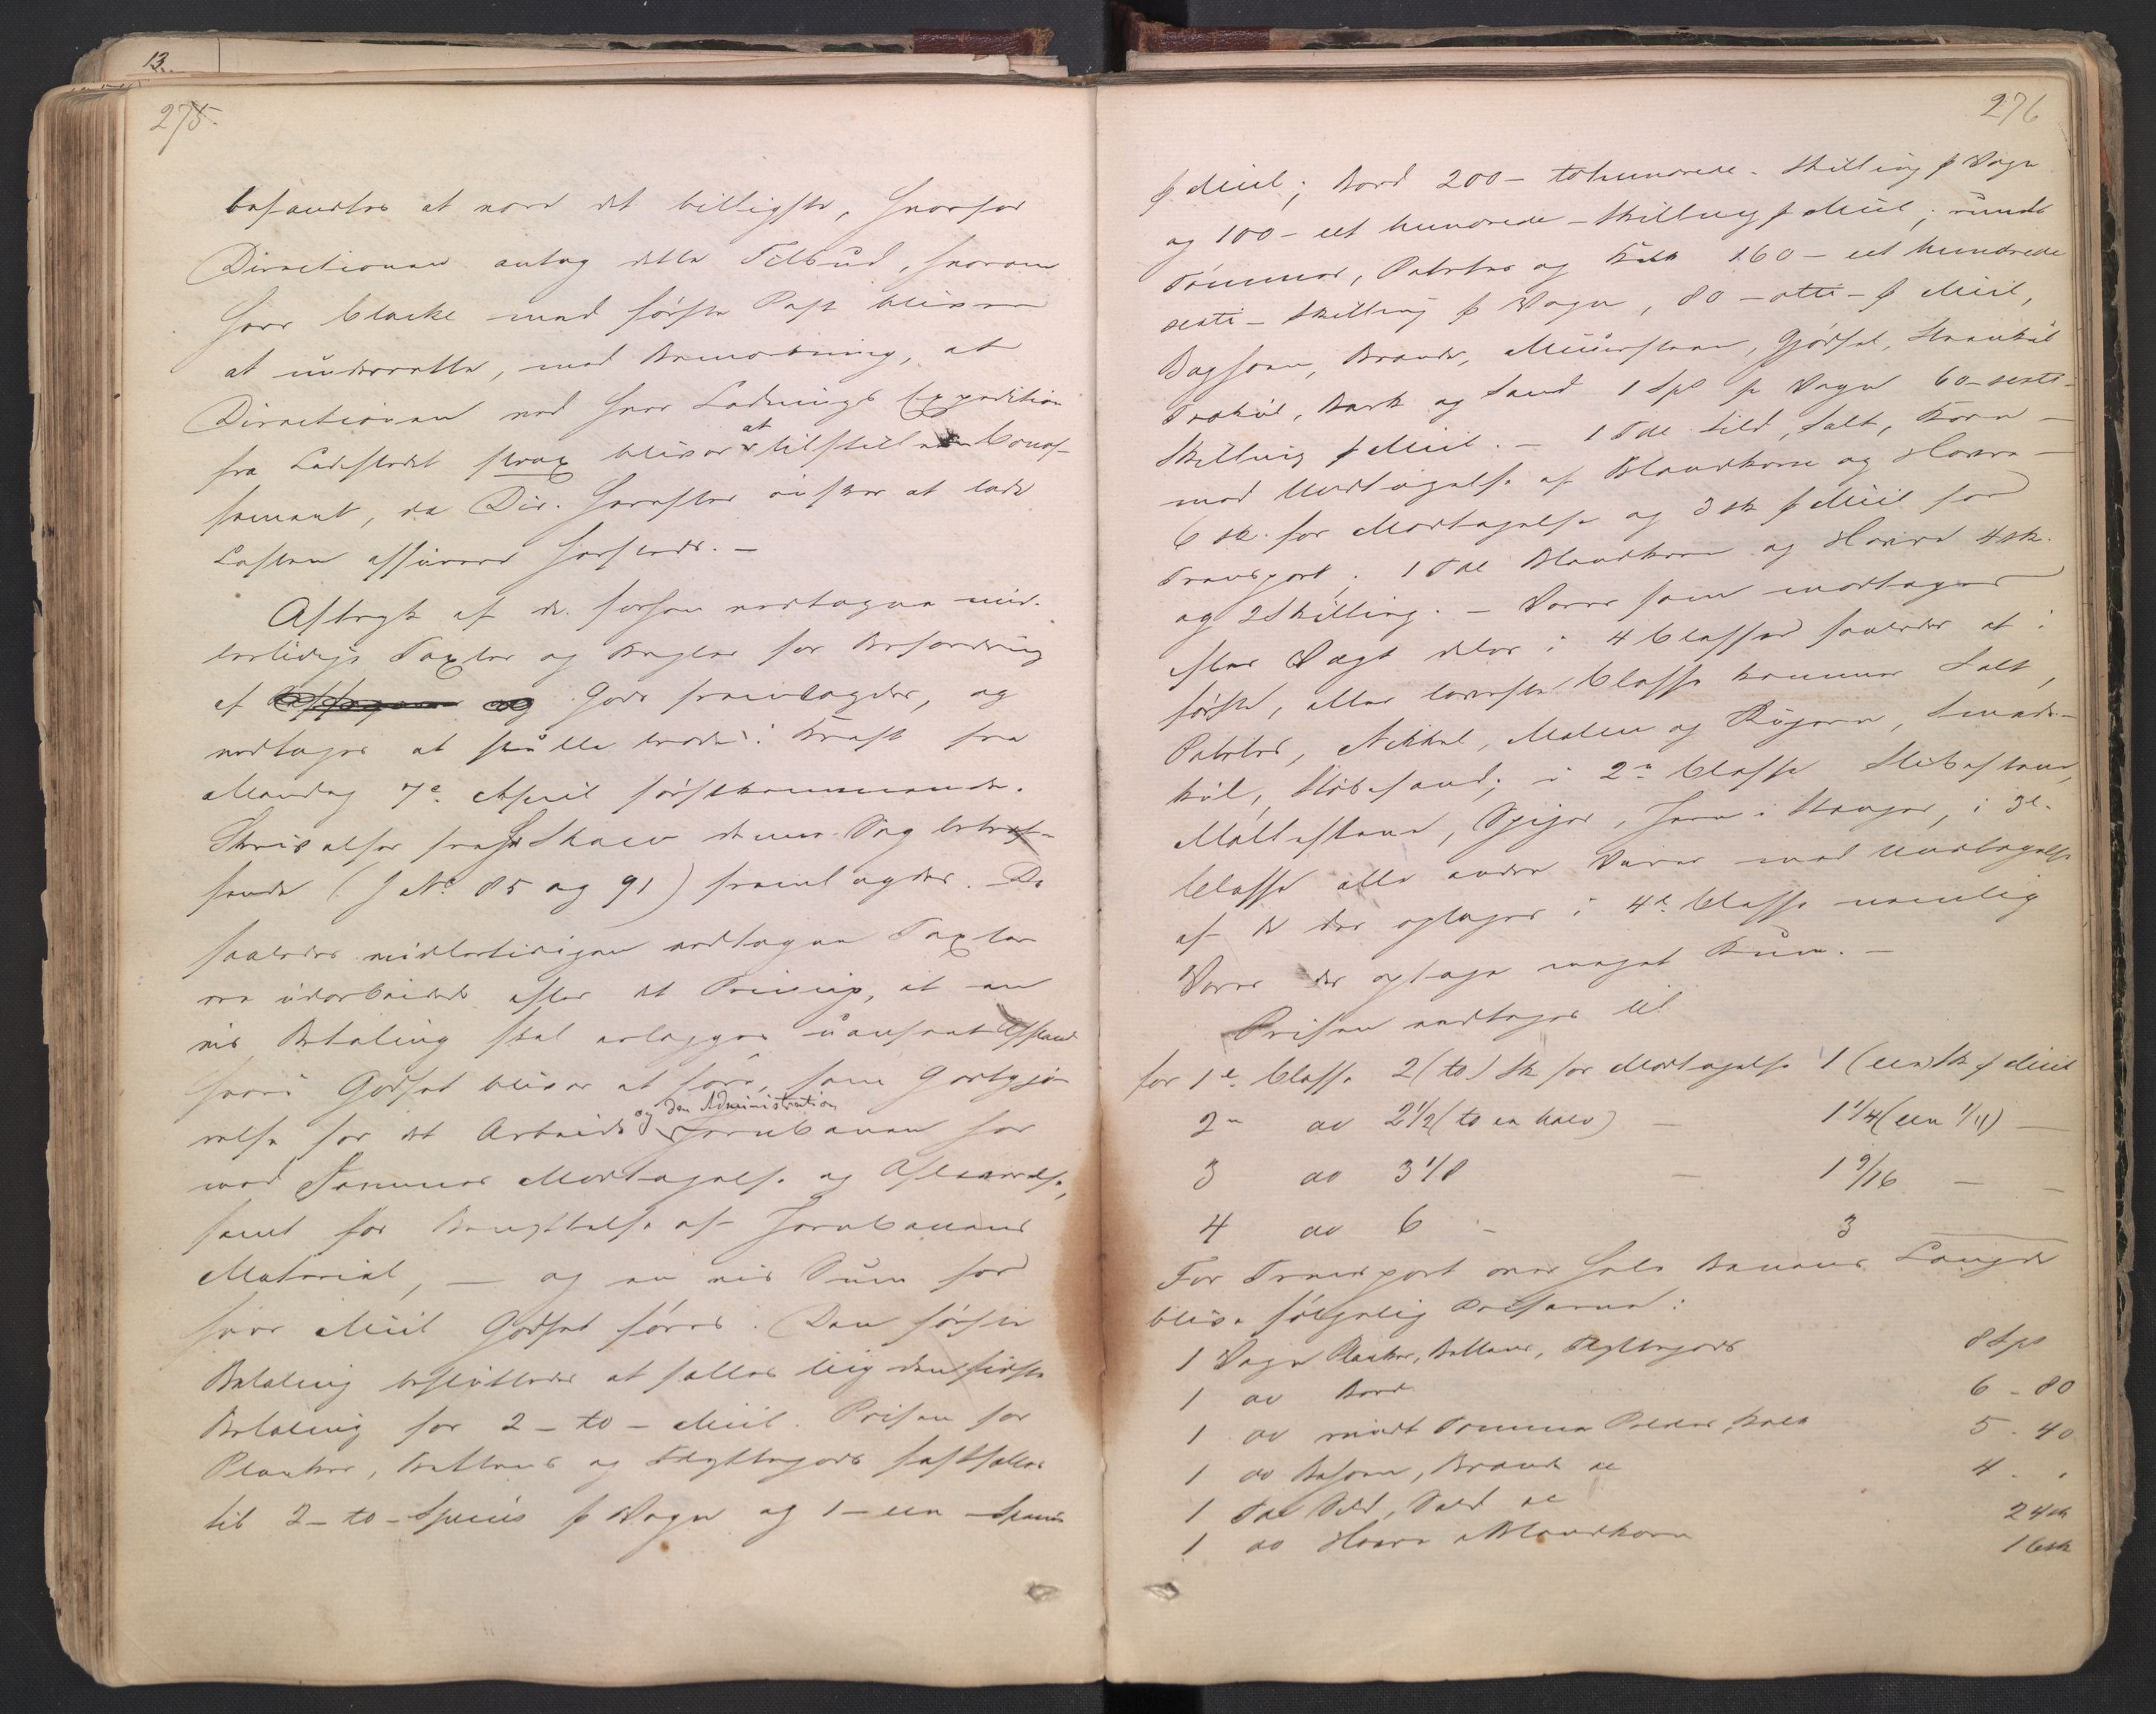 13.
275.
befandtes at være det billigste, hvorfor
Directionen antog dette Tilbud, hvorom
Herr Clarke med første Post bliver
at underrette, med Bemærkning, at
Directionen ved hver Ladnings Expedition
fra Ladestedet strax bliver at tilstille Conos-
sement, da Dir. herefter ønsker at lade
Lasten assurere herstede. —
Aftryk af de forhen vedtagne mid-
lertidige Taxter og Regler for Befordring
af Gods fremlagdes, og
vedtoges at skulle træde i Kraft fra
Mandag 7e April førstkommende.
Skrivelser fra Hr Skaw denne Sag betræf-
fende (J No. 85 og 91) fremlagdes. De
saaledes midlertidigen vedtagne Taxter
ere udarbeidede efter det Princip, at en
vis Betaling skal erlægges uanseet Afstand
hvori Godset bliver at føre, som Godtgjø-
relse for det Arbeide og den Administration Jernbanen har
med Sammes Modtagelse og Afleverelse,
samt for Benyttelse af Jernbanens
Materiel, — og en vis Sum for
hver Miil Godset føres. Den første
Betaling besluttedes at sættes liig den sidste
Betaling for 2 – to – Miil. Prisen for
Planker, Battens og Flyttegods fastsattes
til 2 – to – Species p Vogn og 1 – een – Species
276
p Miil; Bord 200 – tohundrede – Skilling p Vogn
og 100 – eet hundrede – Skilling p Miil; rundt
Tømmer, Props og Kalk 160 – eet hundrede
sexti – Skilling p Vogn, 80 – otti – p Miil,
Baghun, Brænde, Muursteen, Gjødsel, Steenkul
Trækul, Bark og Sand 1 Spd p Vogn 60 – sexti –
Skilling p Miil. — 1 Tde Sild, Salt, Korn —
med Undtagelse af Blandkorn og Havre —
6 sk. for Modtagelse og 3 sk p Miil for
Transport; 1 Tde Blandkorn og Havre 4 sk.
og 2 Skilling. — Varer som modtages
efter Vægt deles i 4 Classer saaledes at i
første, eller laveste Classe kommer Salt,
Nikkel, Malm og Rujern, Smede-
kul, Støbesand; i 2n Classe Slibesteen,
Møllesteen, Spiger, Jern i Stænger, i 3e
Classe alle andre Varer med Undtagelse
af de der optages i 4e Classe nemlig
Varer der optage meget Rum. —
Prisen vedtoges til
for 1e Classe 2 (to) Sk for Modtagelse 1 (een) Sk p Miil
2n do 2 1/2 (to en halv) — 1 1/4 (een 1/4) —
3 do 3 1/8 — 1 9/16 — —
4 do 6 — 3
For Transport over hele Banens Længde
blive følgelig Priserne:
1 Vogn Planker, Battens, Flyttegods 8 Spd
1 do Bord 6 – 80
1 do rundt Tømmer Kalk 5 . 40
1 do Brænde &c 4 . .
1 Tde Sild, Salt &c 24 sk
1 do Havre Blandkorn 16 sk